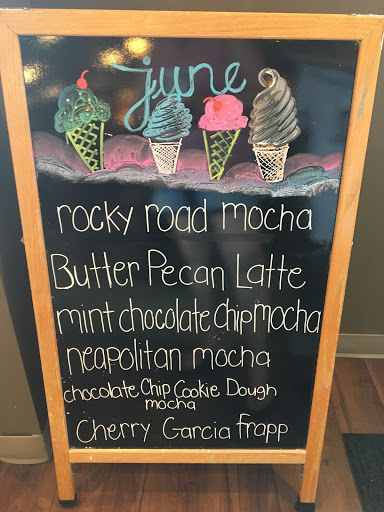 june
rocky road mocha
Butter Pecan Latte
mint chocolate chip mocha
neapolitan mocha
chocolate Chip Cookie Dough
mocha
Cherry Garcia frapp